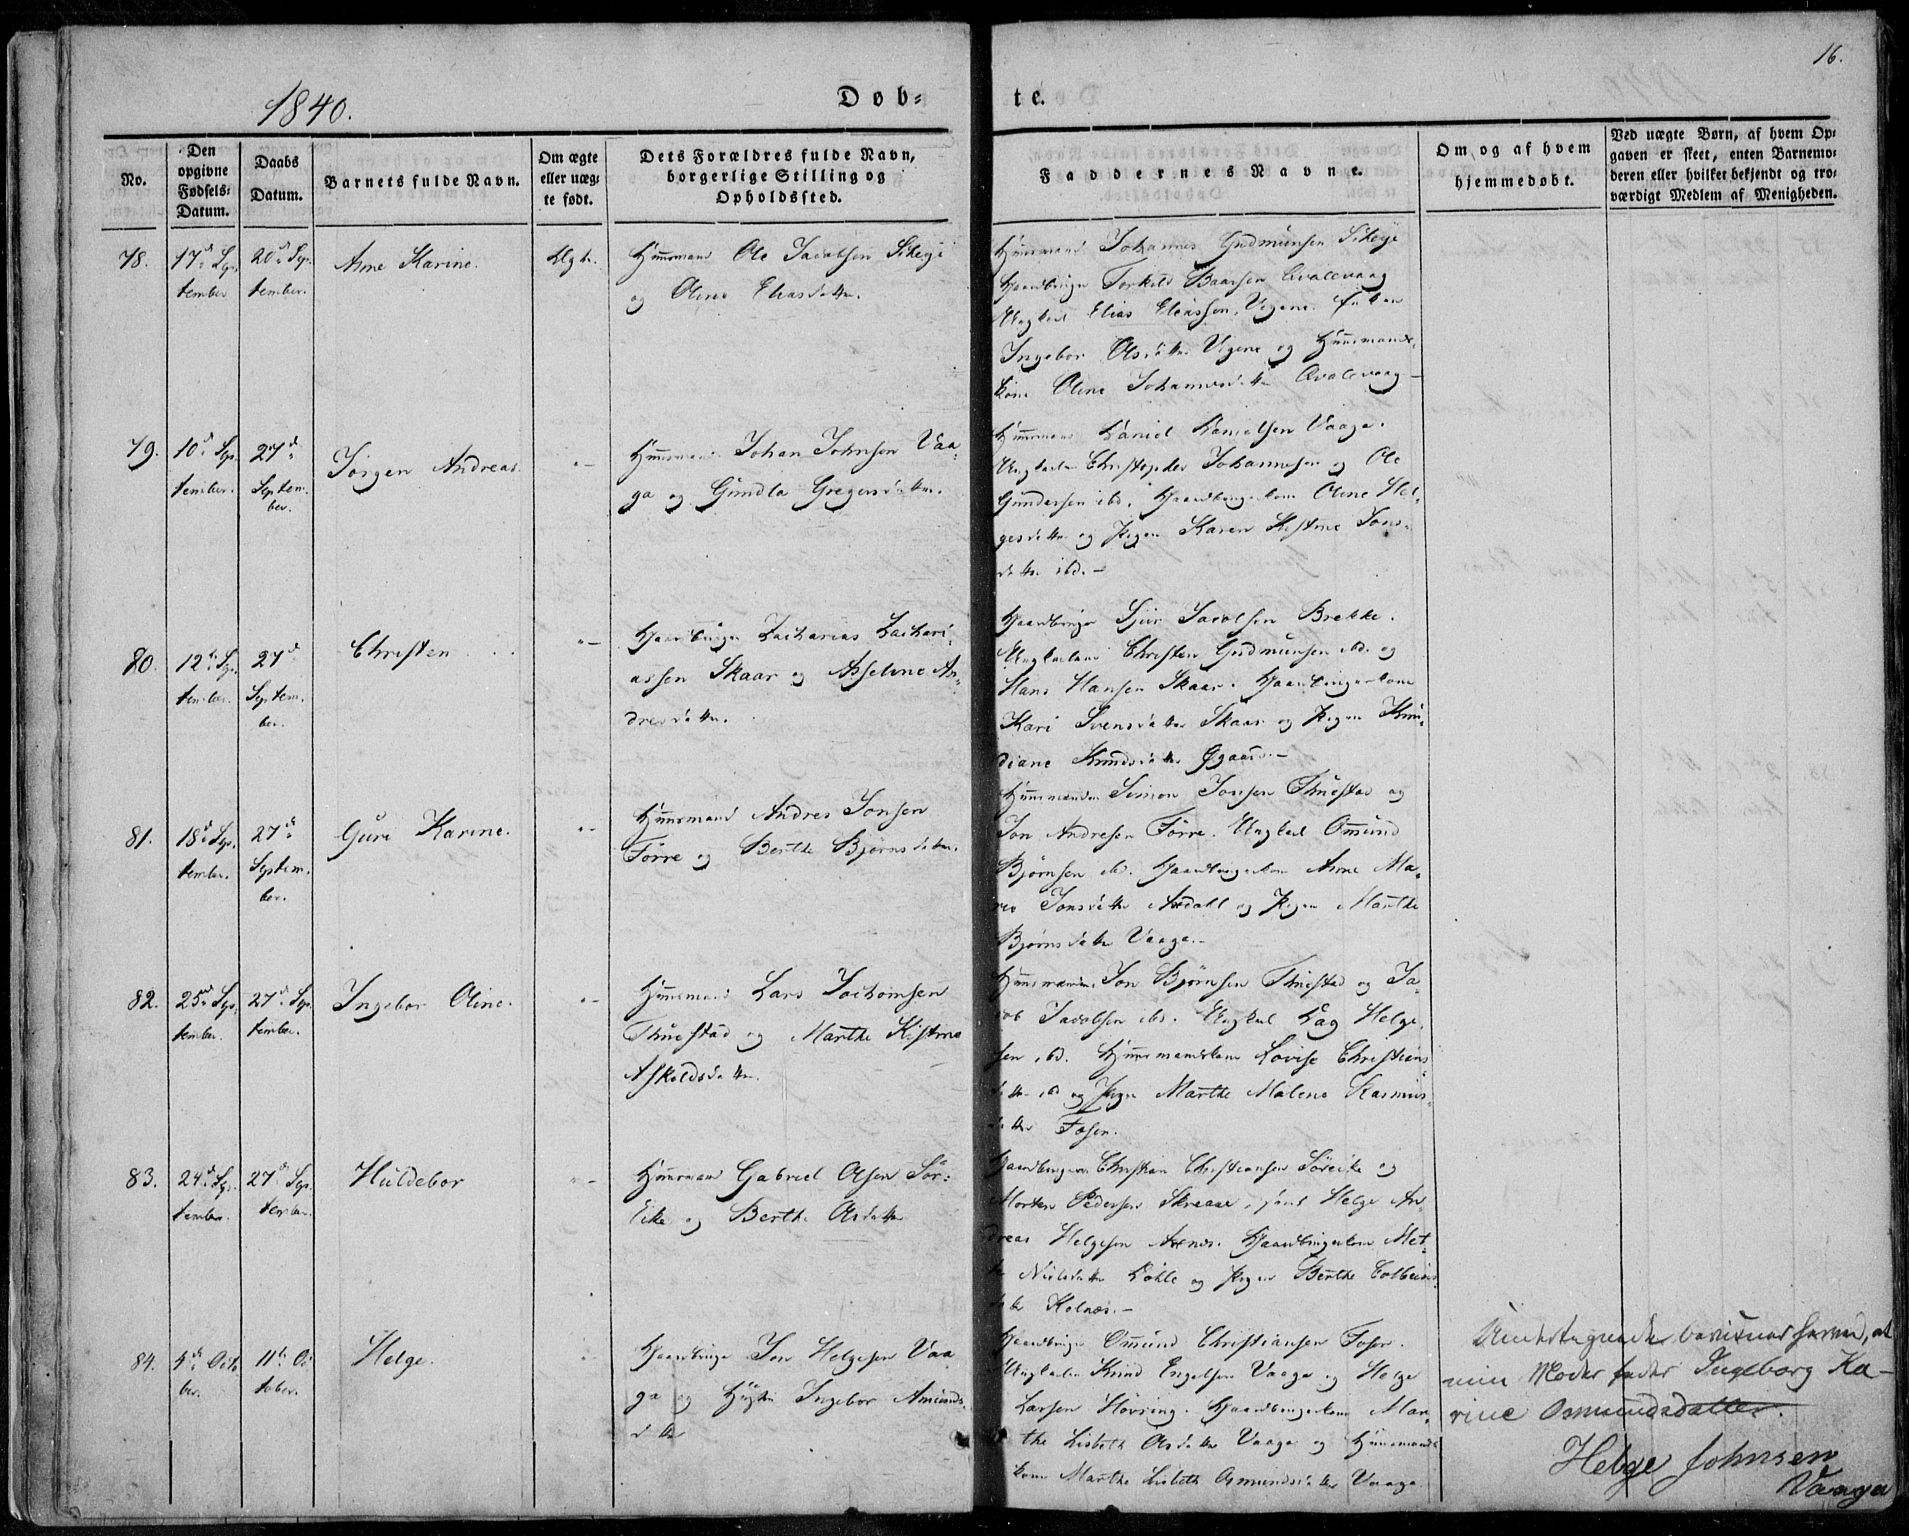 16.
1840.
Døb-
te.
No.
Den
opgivne
Fødsels-
Datum.
Daabs
Datum.
Barnets fulde Navn.
Om ægte
eller uæg-
te født.
Dets Forældres fulde Navn,
borgerlige Stilling og
Opholdssted.
Faddernes Navne.
Om og af hvem
hjemmedøbt.
Ved uægte Børn, af hvem Op-
gaven er skeet, enten Barnemo-
deren eller hvilket bekjendt og tro-
værdigt Medlem af Menigheden.
78.
17de Sep-
tember
20de Sep-
tember.
Anne Karine.
Huusmand Ole Jacobsen
og Oline Eliasdatter.
Huusmand Johannes Gudmundsen
Torkild Baarsen Qvalevaag
Ungkarl Elias Eliassen
Ingebor Olsdatter og Huusmands-
kone Oline Johannesdatter Qvalevaag
79.
10de Sep-
tember.
27de
Septem-
ber.
Jørgen Andreas.
Huusmand Johan Johnsen Vaa-
ga og Gundla Gregersdatter.
Huusmand Daniel Danielsen Vaage.
Ungkarlene Christopher Johannesen og Ole
Gundersen ibd. Gaardbrugerkone Oline Hel-
gesdatter og Pigen Karen Kistine Jons-
datter ibd. –
80.
12te Sep-
tember.
27de
Septem-
ber.
Christen
Gaardbruger Zacharias Zachari-
assen Skaar og Asseline An-
dresdatter.
Gaardbruger Sjur Jacobsen Brekke.
Ungkarlene Christen Gudmundsen ibd. og
Hans Hansen Skaar. Gaardbrugerkone
Kari Svensdatter Skaar og Pigen Knu-
diane Knudsdatter
81.
18de Sep-
tember.
27de
Septem-
ber.
Guri Karine.
Huusmand Andres Jonsen
Førre og Berthe Bjørnsdatter.
Huusmændene Simon Jonsen Thuestad og
Jon Andresen Førre. Ungkarl Omund
Bjørnsen ibd. Gaardbrugerkone Anne Ma-
Jonsdatter Axdahl og Pigen Marthe
Bjørnsdatter Vaage. –
82.
25de Sep-
tember.
27de Sep-
tember.
Ingebor Oline.
Huusmand Lars Jochomsen
Thuestad og Marthe Kistine
Askildsdatter.
Huusmændene Jon Bjørnsen Thuestad og Ja-
cob Jacobsen ibd. Ungkarl Dag Helge-
sen ibd. Huusmandskone Lovise Christians-
datter ibd og Pigen Marthe Malene Rasmus-
datter Fosen.
83.
24de Sep-
tember.
27de Sep-
tember.
Huldebor
Huusmand Gabriel Olsen Sør-
Eike og Berthe Olsdatter
Gaardbrugerne Christian Christiansen Søreike og
Morten Pedersen Skraae, samt Helge An-
dreas Helgesen Gaardbrugerkone Met-
Nielsdatter og Pigen Berthe Colbeins-
datter Kolnæs. –
84.
October.
11te Oc-
tober.
Helge.
Gaardbruger Jon Helgesen Vaa-
ga og Hustru Ingebor Amunds-
datter
Gaardbruger Omund Christiansen Fosen.
Ungkarlene Knud Engelsen Vaage og Helge
Larsen Høvring. Gaardbrugerkone Mar-
the Lisbeth Olsdatter Vaage og Huusmands-
kone Marthe Lisbeth Osmundsdatter Vaage
Undertegnede beviisner herved, at
min Moder heder Ingeborg Ka-
rine Osmundsdatter.
Helge Johnsen
Vaage